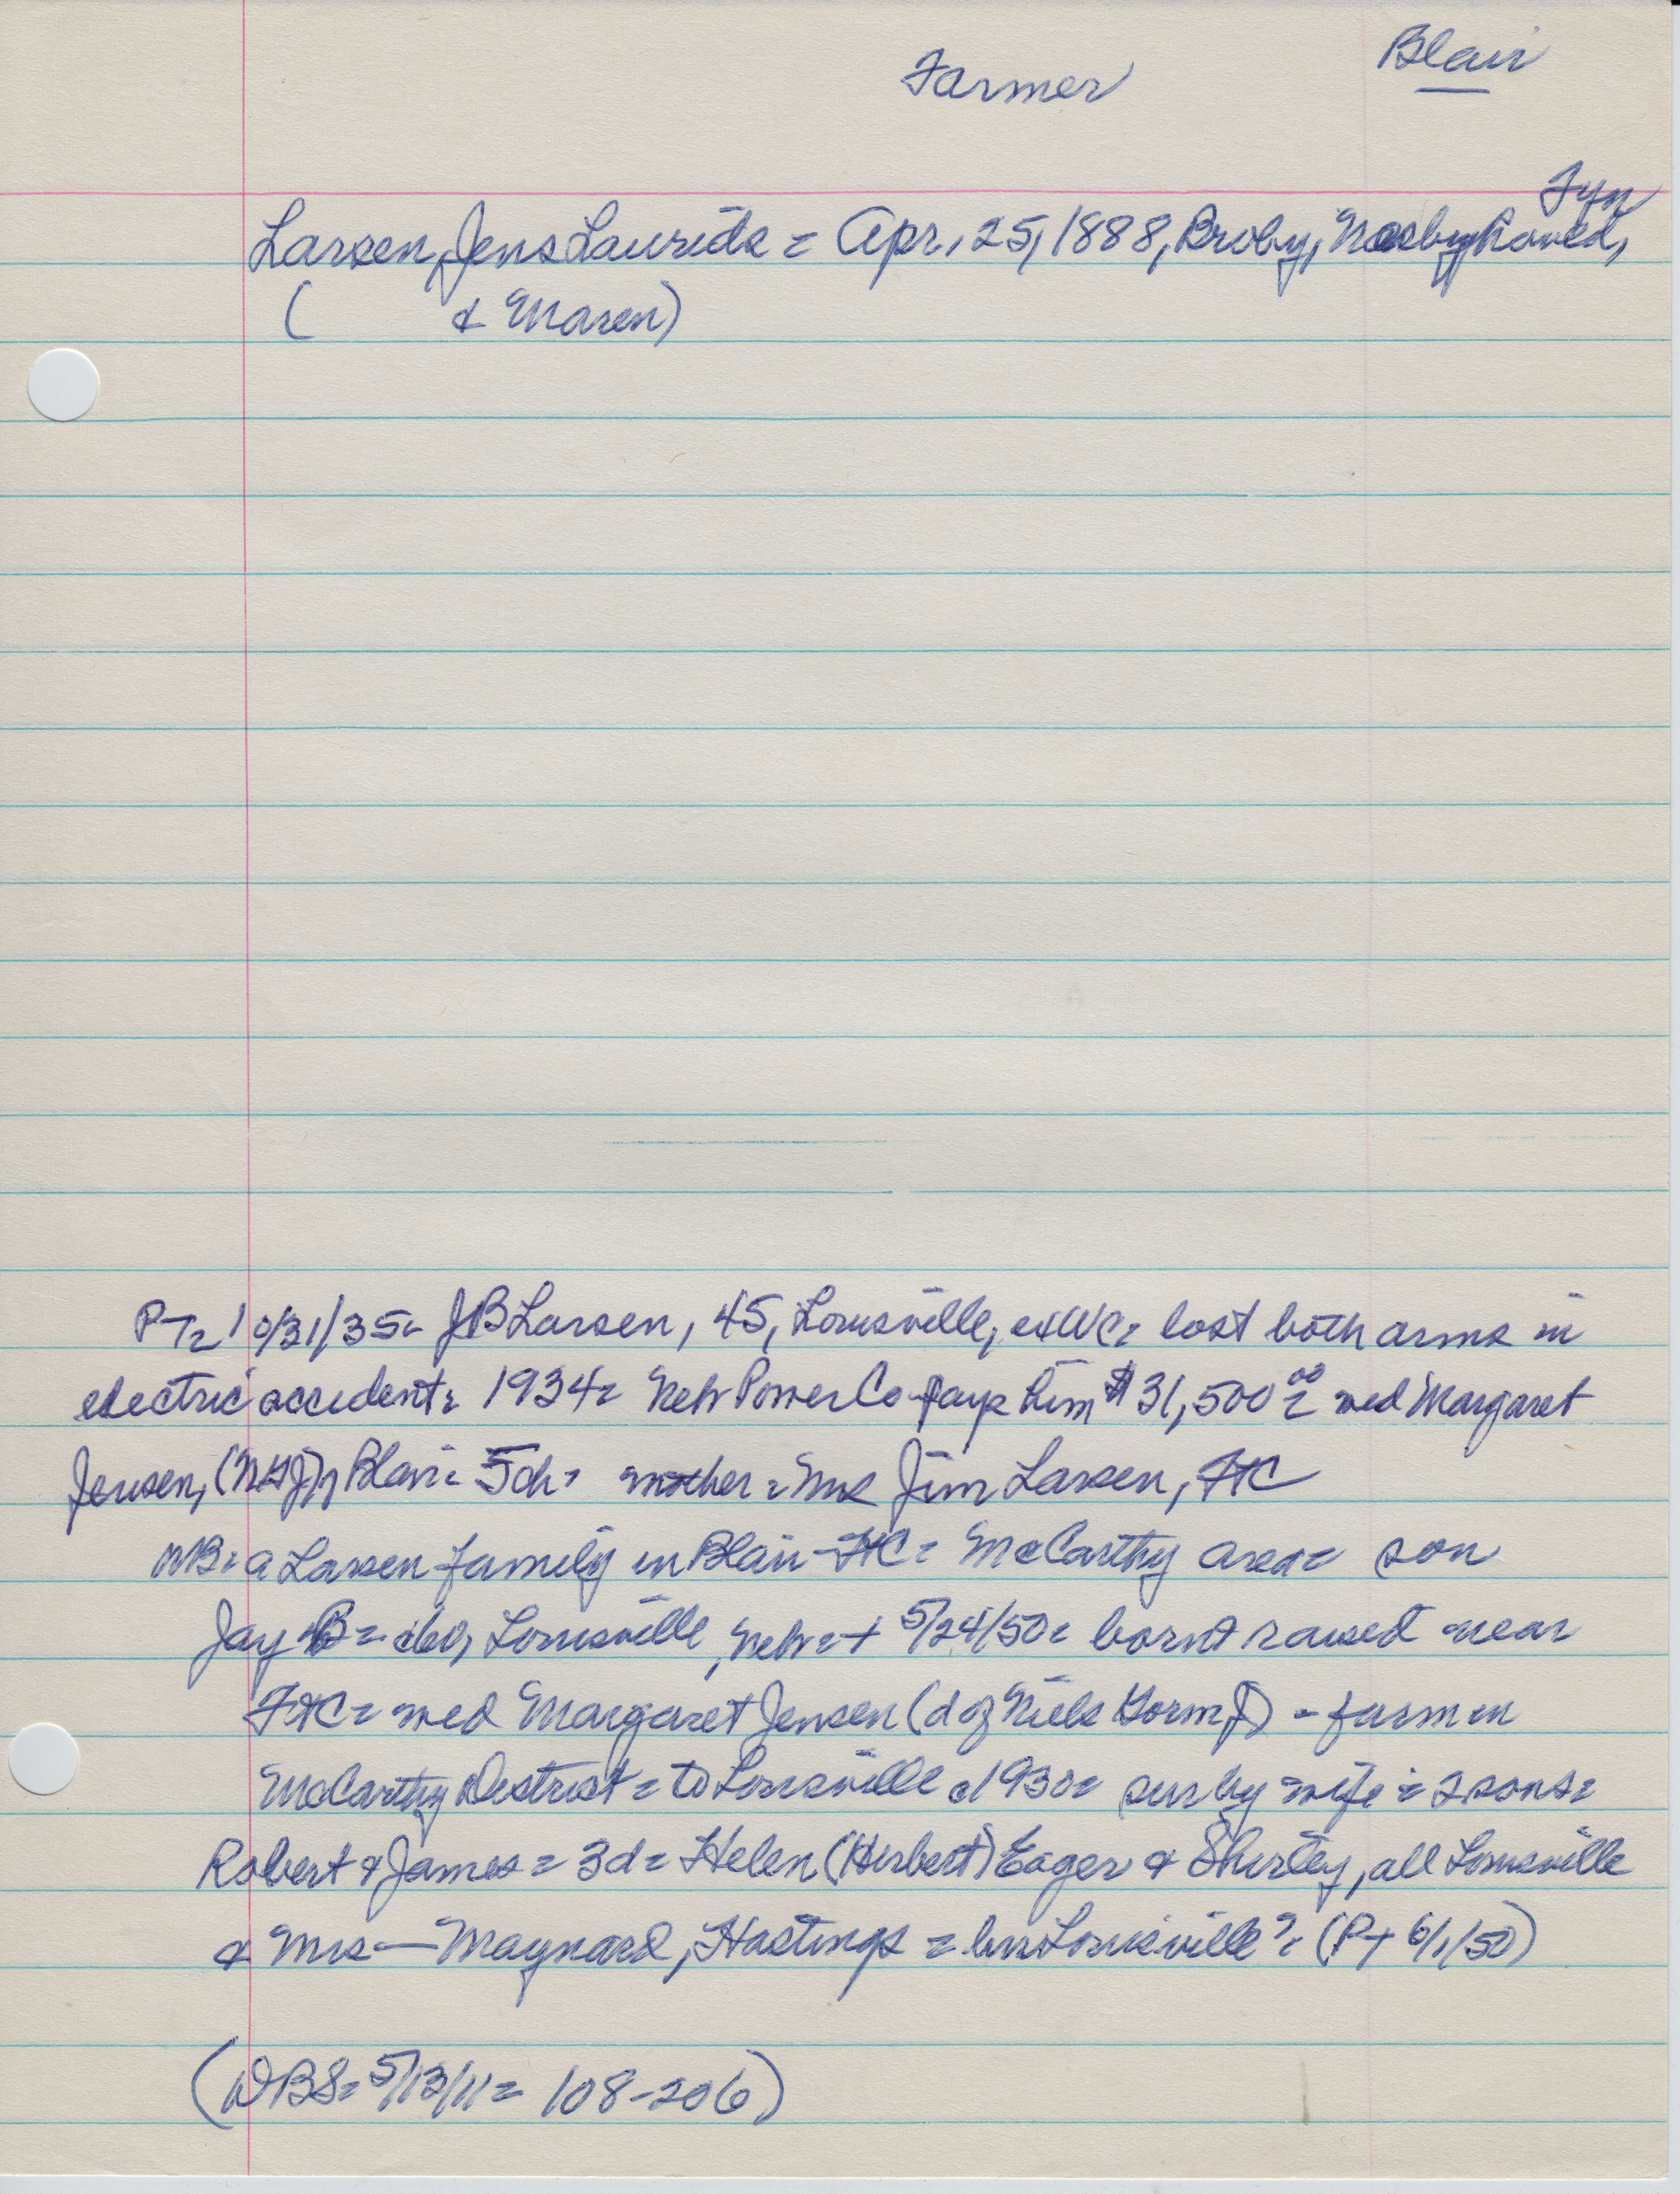 Farmer
Blair
Fyn
Larsen, Jens Laurids = Apr. 25, 1888, Broby, Naesbyhoved,
( & Maren)
PT= 10/31/35= JB Larsen, 45, Louisville, exWC= lost both arms in
electric accident= 1934= Neb Power Co pays him $31,500 00 = med Margaret
Jensen, (NGJ), Blair= 5ch= mother = Mrs Jim Larsen, FtC
NB= a Larsen family in Blair-FtC= McCarthy area= son
Jay B= 60, Louisville, Neb= + 5/24/50= born & raised near
FtC= med Margaret Jensen (d of Niels Gorm J) - farm in
McCarthy District = to Louisville 1930= sur by wife = 2 sons=
Robert & James = 3d= Helen (Herbert) Eager & Shirley, all Louisville
& Mrs — Maynard, Hastings = Louisville?= (PT 6/1/50)
(DBS= 5/13/11= 108-206)